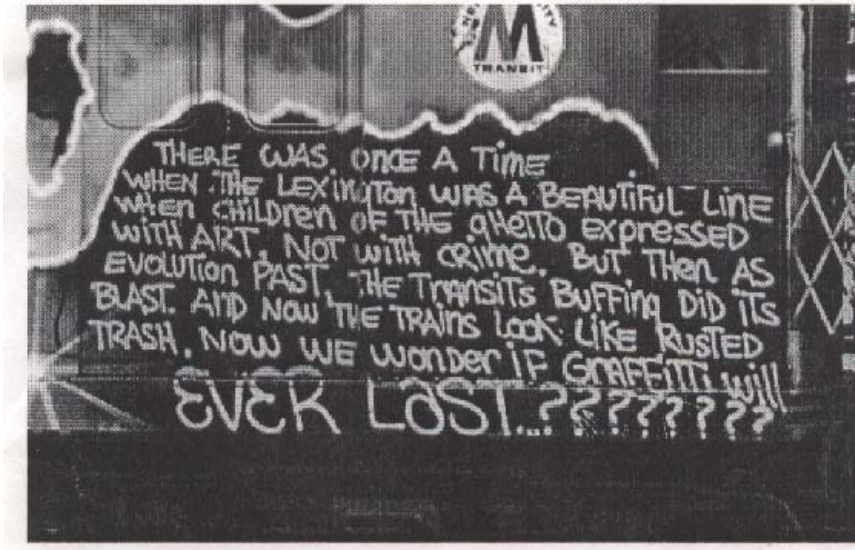 M
TRANSIT
THERE WAS ONCE A TIME
WHEN THE LEXINGTON WAS A BEAUTIFUL LINE
WHEN CHILDREN OF THE GHETTO EXPRESSED
WITH ART, NOT WITH CRIME. BUT THEN AS
EVOLUTION PAST, THE TRANSITS BUFFING DID ITS
BLAST. AND NOW THE TRAINS LOOK LIKE RUSTED
TRASH. NOW WE WONDER IF GRAFFITTI WILL
EVER LAST..????????